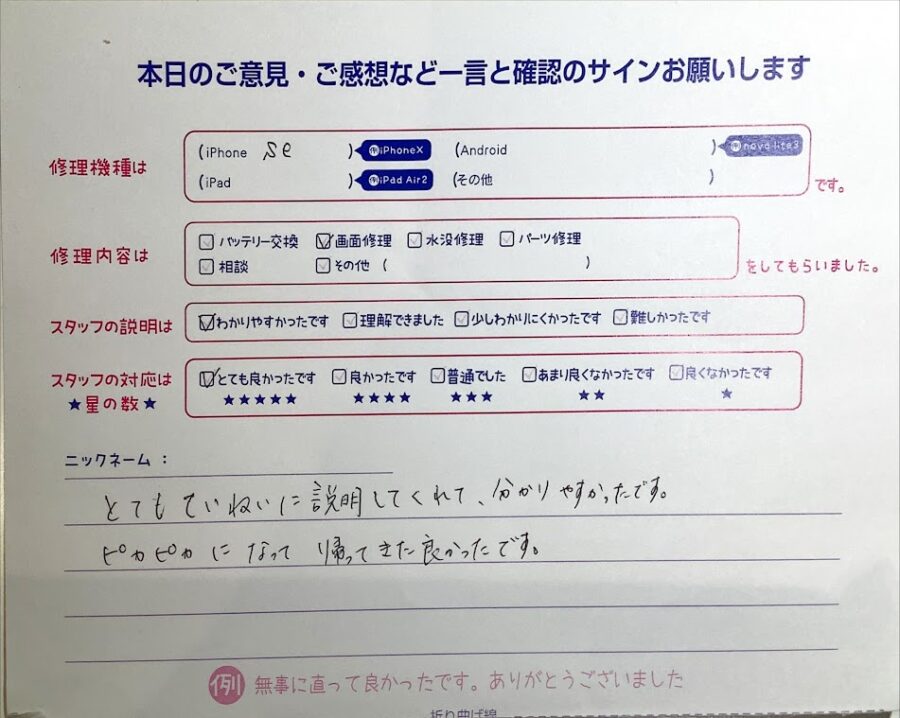 本日のご意見・ご感想など一言と確認のサインお願いします
修理機種は
(iPhone se ) 例iPhoneX (Android ) 例nova lite3
(iPad ) 例iPad Air2 (その他 ) です。
修理内容は
バッテリー交換 画面修理 水没修理 パーツ修理
相談 その他 ( ) をしてもらいました。
スタッフの説明は
わかりやすかったです 理解できました 少しわかりにくかったです 難しかったです
スタッフの対応は
★星の数★
とても良かったです 良かったです 普通でした あまり良くなかったです 良くなかったです
★★★★★ ★★★★ ★★★ ★★ ★
ニックネーム:
とてもていねいに説明してくれて、分かりやすかったです。
ピカピカになって帰ってきた良かったです。
例 無事に直って良かったです。ありがとうございました
折り曲げ線